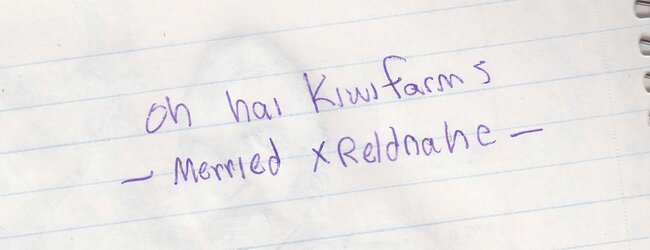 oh hai Kiwifarms
- Merried XReldnahe -